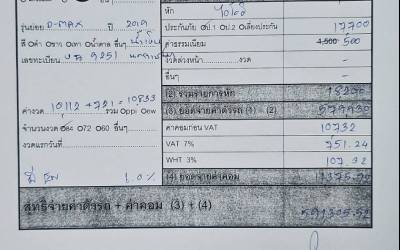 หัก
รุ่นย่อย D-MAX ปี 2019
ประกันภัย ป.1 ป.2 เลี่ยงประกัน 17700
สี ดำ ขาว เทา น้ำตาล อื่นๆ
ค่าธรรมเนียม 4,500 500
เลขทะเบียน 9251
งวดล่วงหน้า งวด -
อื่นๆ -
(2) รวมรายการหัก 18200
ค่างวด 10,112 + 721 = 10833
(3) ยอดจ่ายค่าตัวรถ (1) - (2)
จำนวนงวด 84 72 60 อื่นๆ
ค่าคอมก่อน VAT 10732
งวดแรกวันที่
VAT 7% 751.24
WHT 3% 107.32
1.0% (4) ยอดจ่ายค่าคอม
สิทธิ์จ่ายค่าตัวรถ + ค่าคอม (3) + (4)